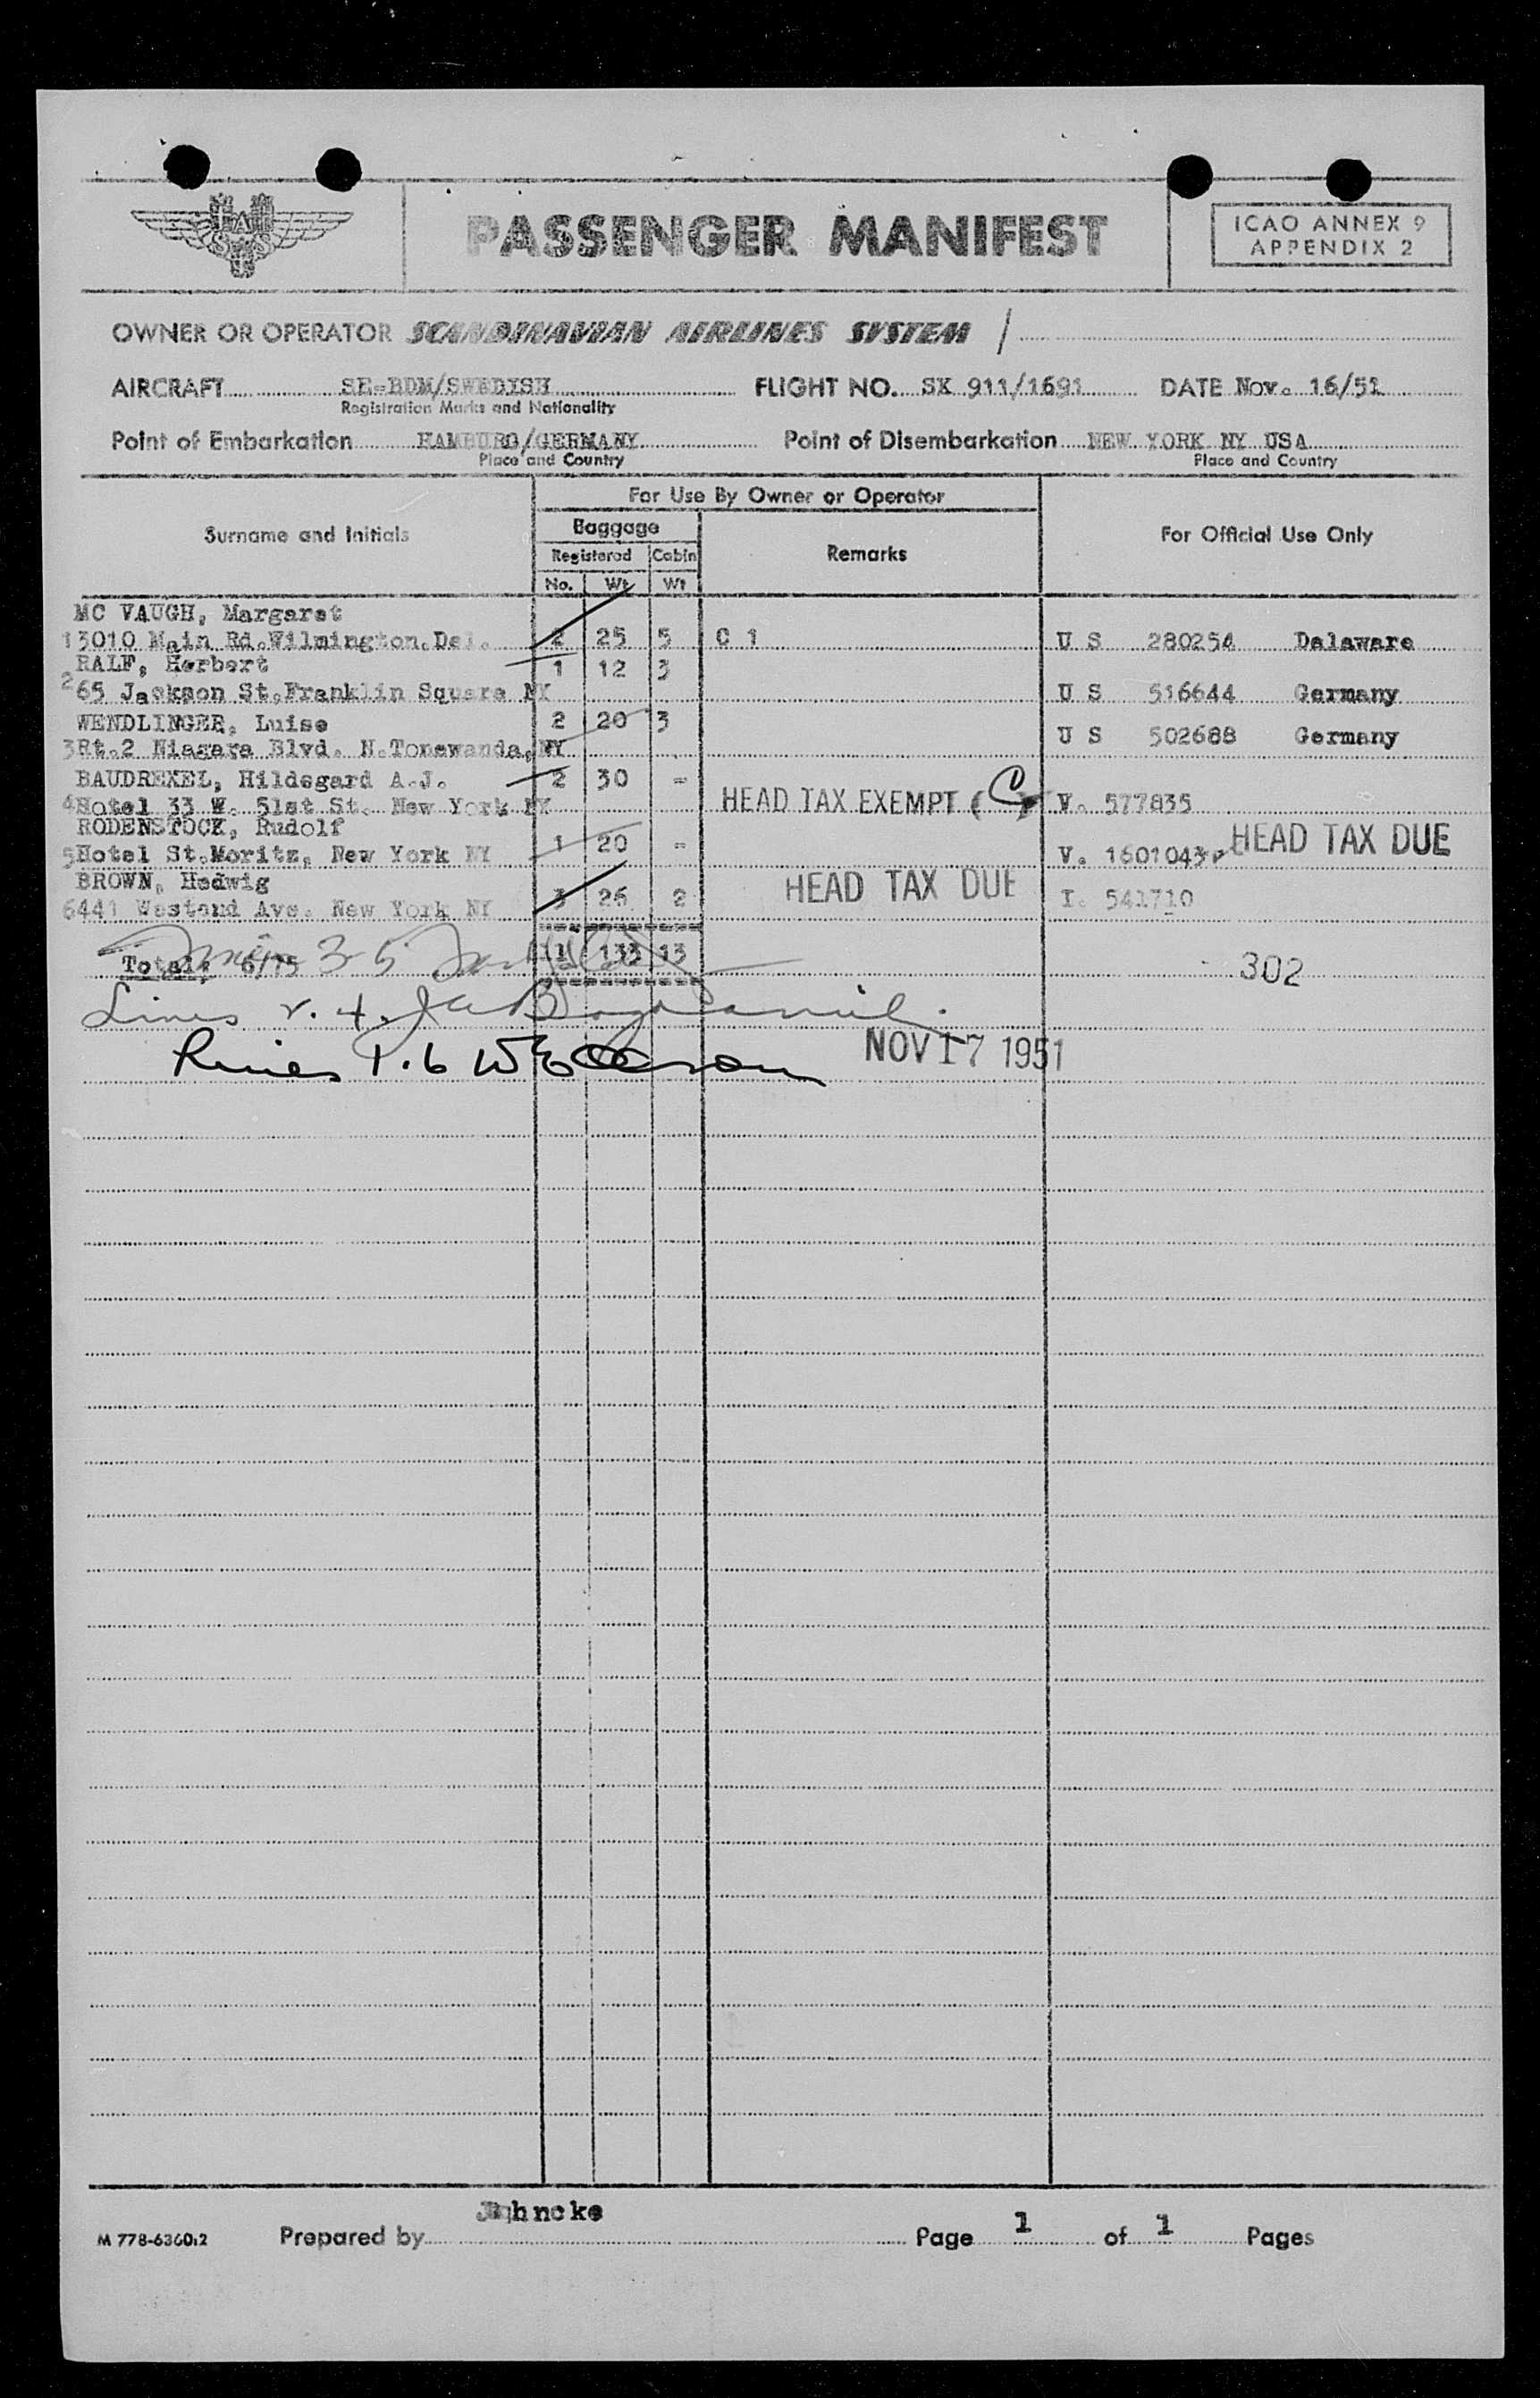 SAS
PASSENGER MANIFEST
ICAO ANNEX 9
APPENDIX 2
OWNER OR OPERATOR SCANDINAVIAN AIRLINES SYSTEM /
AIRCRAFT SE-BDM/SWEDISH FLIGHT NO. SK 911/1691 DATE Nov. 16/51
Registration Marks and Nationality
Point of Embarkation HAMBURG/GERMANY Point of Disembarkation NEW YORK NY USA
Place and Country Place and Country
For Use By Owner or Operator
Surname and Initials Baggage Remarks For Official Use Only
Registered Cabin
No. Wt Wt
MC VAUGH, Margaret
1 3010 Main Rd.Wilmington.Del. 2 25 5 C 1 U S 280254 Delaware
RALF, Herbert 1 12 3
2 65 Jackson St.Franklin Square NY U S 516644 Germany
WENDLINGER, Luise 2 20 3 U S 502688 Germany
3 Rt.2 Niagara Blvd. N.Tonewanda,NY
BAUDREXEL, Hildegard A.J. 2 30 -
4 Hotel 33 W. 51st St. New York NY HEAD TAX EXEMPT ( C V. 577835
RODENSTOCK, Rudolf 1 20 -
5 Hotel St.Moritz, New York NY V. 1601043 HEAD TAX DUE
BROWN, Hedwig HEAD TAX DUE
6 441 Westend Ave. New York NY 3 26 2 I. 541710
Total: 6/75 3-5 11 133 13 302
Lines 2.4.
Lines 1.6
NOV 17 1951
Jahncke
M 778-6360:2 Prepared by Page 1 of 1 Pages